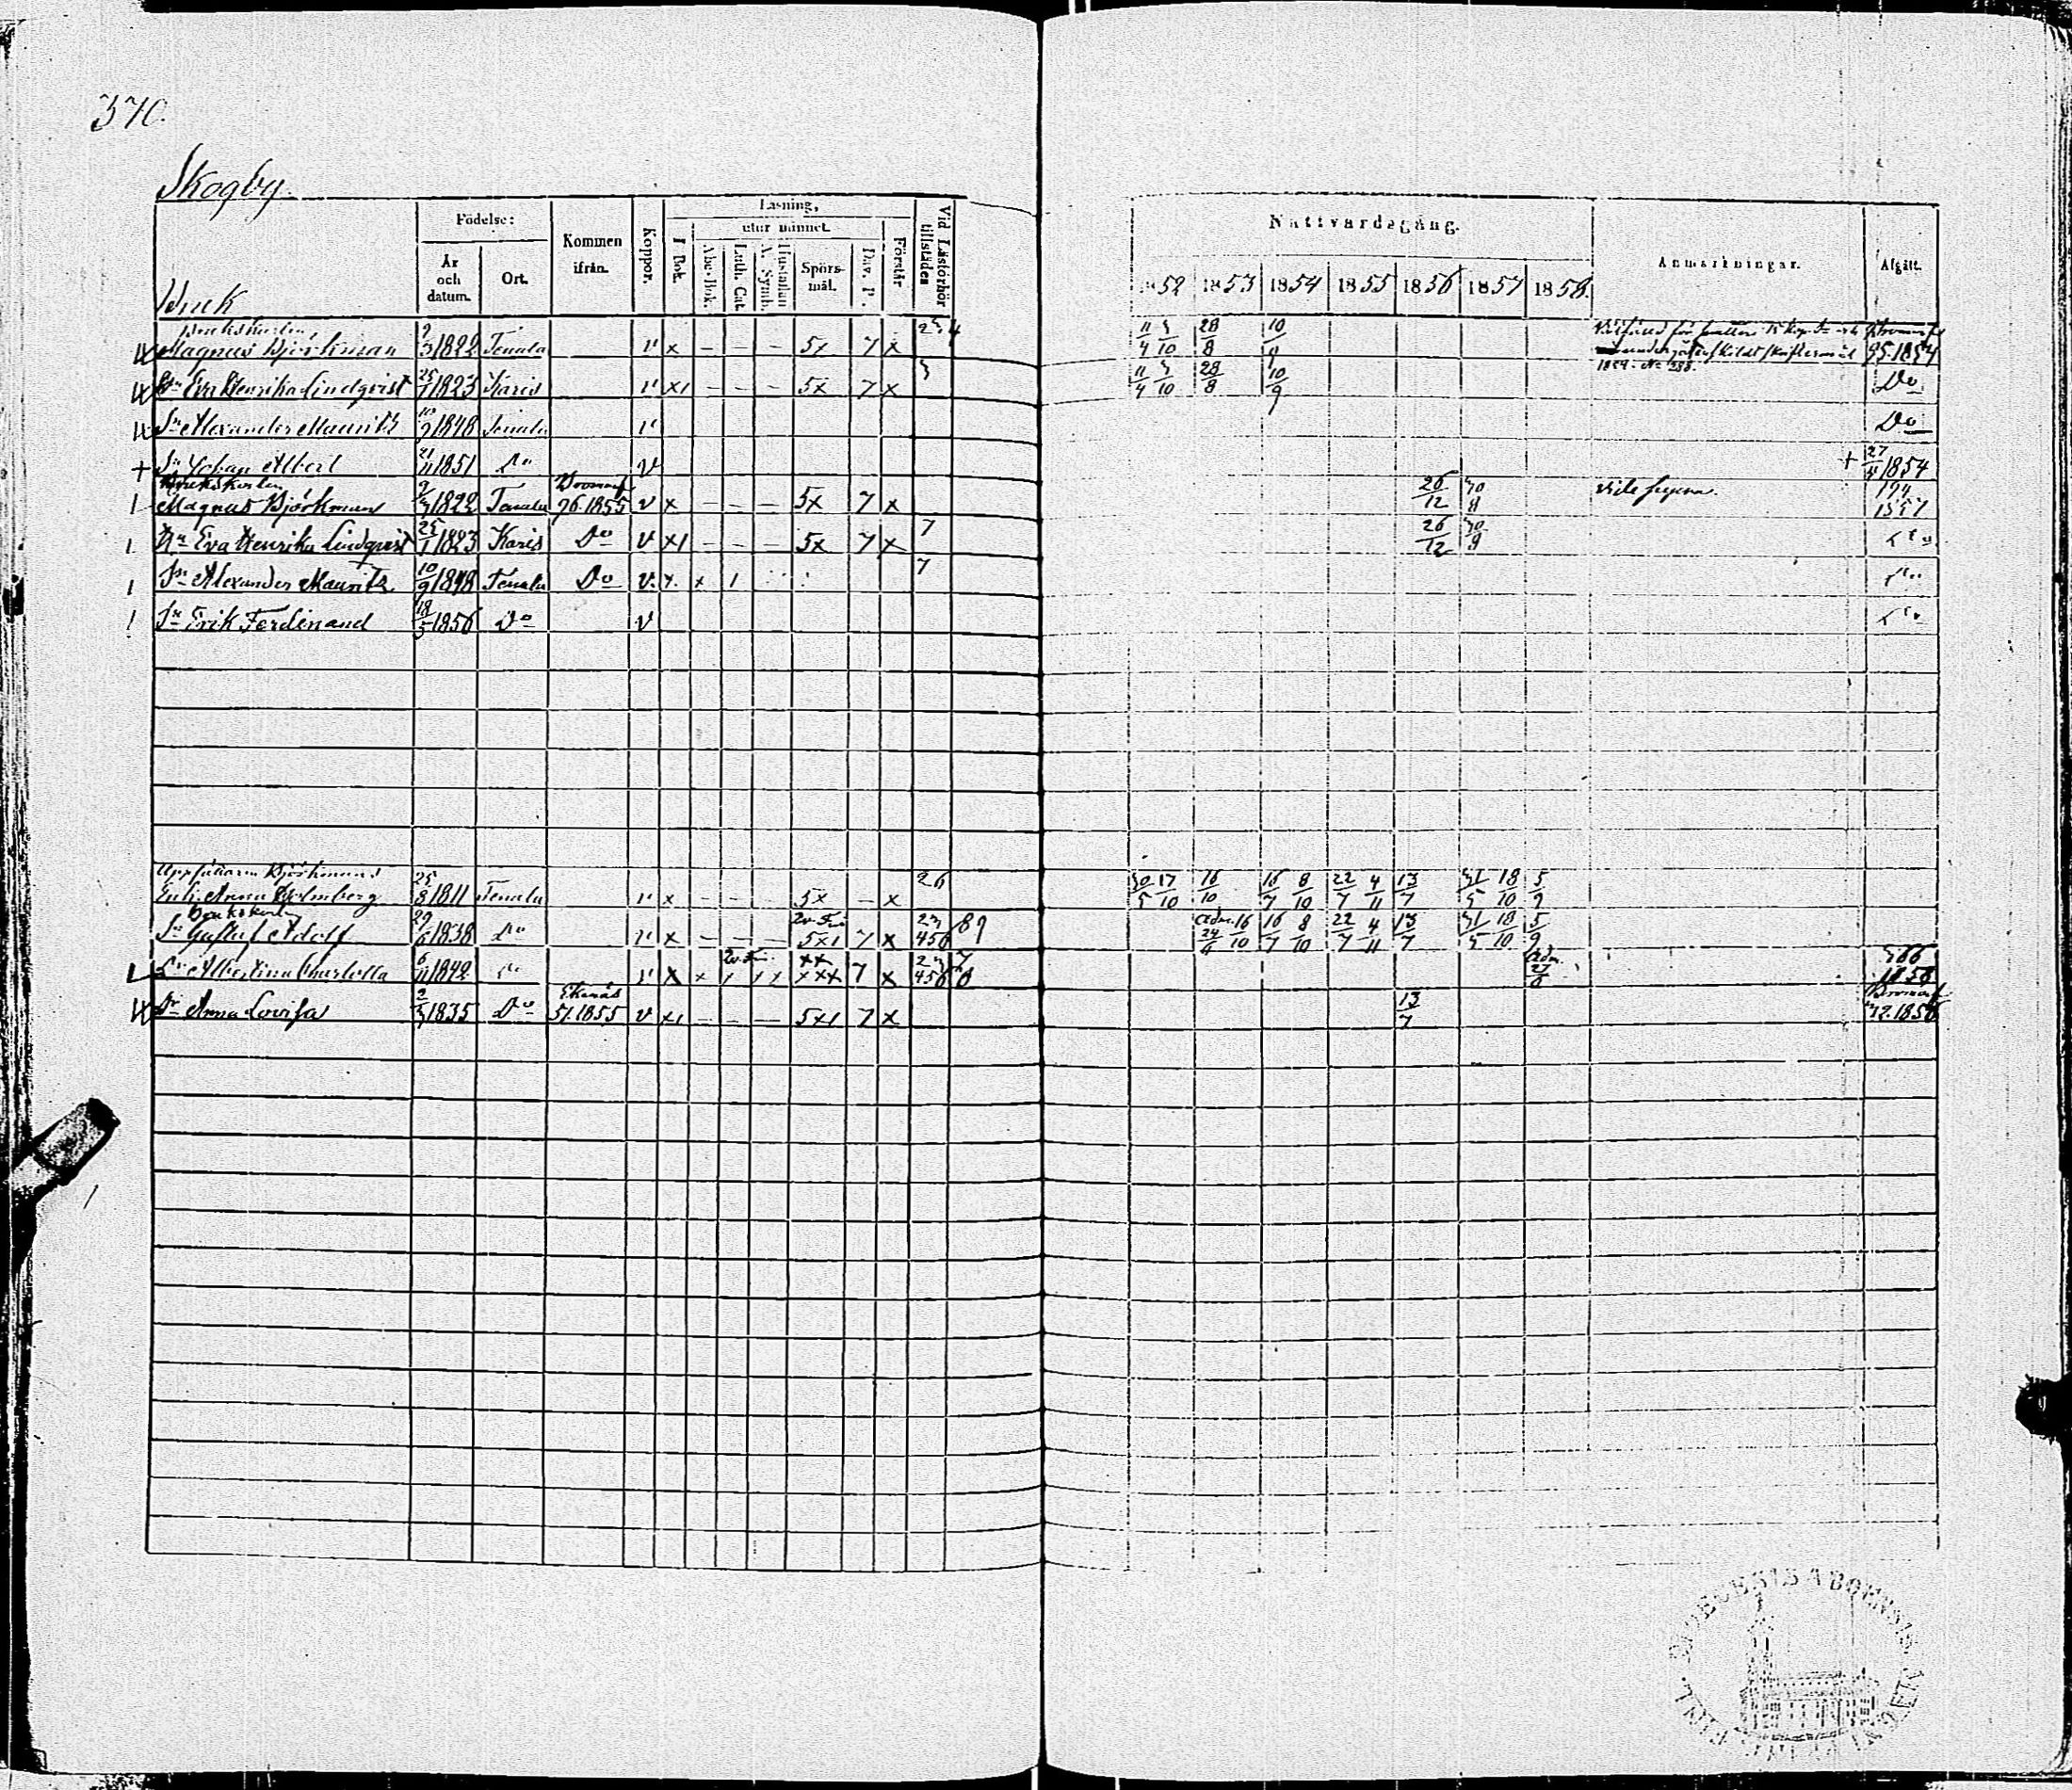 370.
Skogby.
Bruk
Födelse:
År och datum.
Ort.
Kommen ifrån.
Koppor.
Läsning,
I Bok.
utur minnet.
Abc-Bok.
Luth. Cat.
A. Symb.
Hustaflan
Spörs-mål.
Dav. P.
Förstår
Vid Läsförhör tillstädes
Nattvardsgång.
1852 1853 1854 1855 1856 1857 1858.
Anmärkningar.
Afgått.
Brukskarlen
Magnus Björkman 9/3 1822 Tenala v x – – – 5x 7 x 11/4 3/10 28/8 10/9 95.1854
Hu Eva Henrika Lindqvist 25/1 1823 Karis v x1 – – – 5x 7 x 3 11/4 3/10 28/8 10/9 Do
Sn Alexander Mauritz 10/9 1848 Tenala v Do
+ Sn Johan Albert 21/11 1851 Do v + 27/11 1854
Brukskarlen
Magnus Björkman 9/3 1822 Tenala Bromarf 76.1855 v x – – – 5x 7 x 26/12 30/8 vide supra. 1857
Hu Eva Henrika Lindqvist 25/1 1823 Karis Do v x1 – – – 5x 7 x 7 26/12 30/8 Do
Sn Alexander Mauritz 10/9 1848 Tenala Do v. x 1 7 Do
Sn Erik Ferdinand 18/5 1856 Do v Do
Björkmans
Enk. Anna Holmberg 25/8 1811 Tenala v x – – – 5x – x 26 30/5 17/10 16/10 16/7 8/10 22/7 4/11 13/7 31/5 18/10 5/9
Brukskarlen
Sn Gustaf Adolf 29/6 1838 Do v x – – – 5x1 7 x 23 456 89 adm. 24/6 16/10 16/7 8/10 22/7 4/11 13/7 31/5 18/10 5/9
Dr Albertina Charlotta 6/11 1842 Do v x x x x x xxx 7 x 23 7 456 8 adm. 27/6 366 1858
Dr Anna Lovisa 2/3 1835 Do Ekenäs 51.1855 v x1 – – – 5x1 7 x 13/7 Bromarf